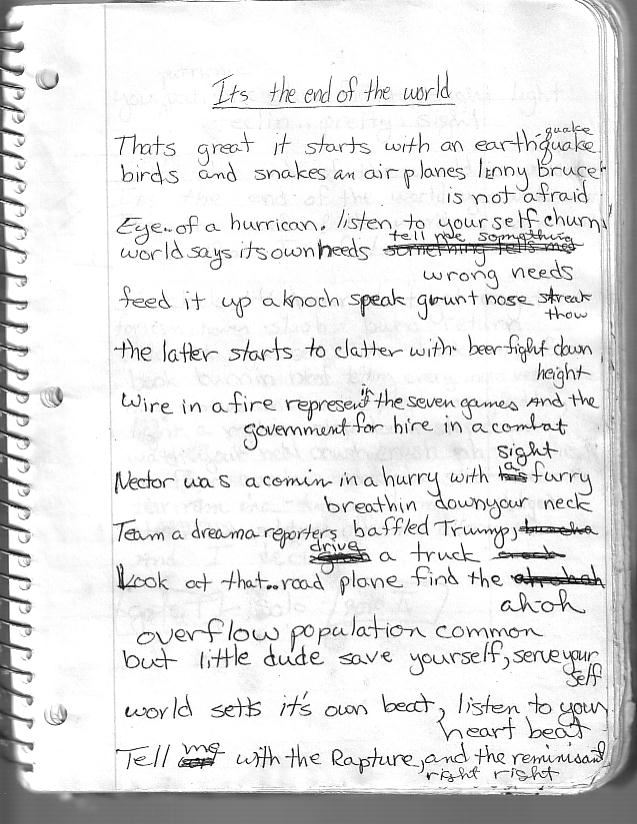 Its the end of the world
Thats great it starts with an earth-quake quake
birds and snakes an airplanes linny bruce
is not afraid
Eye of a hurrican. listen to yourself churn
world says its own needs tell me something something tells me
wrong needs
feed it up a knoch speak grunt nose streak
thow
the latter starts to clatter with beer fight down
height
Wire in a fire represent in the seven games and the
government for hire in a combat
sight
Nector was a comin in a hurry with a furry
breathin down your neck
Team a dreama reporters baffled Trump,
drive a truck
Look at that.. road plane find the
ah-oh
overflow population common
but little dude save yourself, serve your
self
world setts it's own beat, listen to your
heart beat
Tell me with the Rapture, and the reminisant
right right